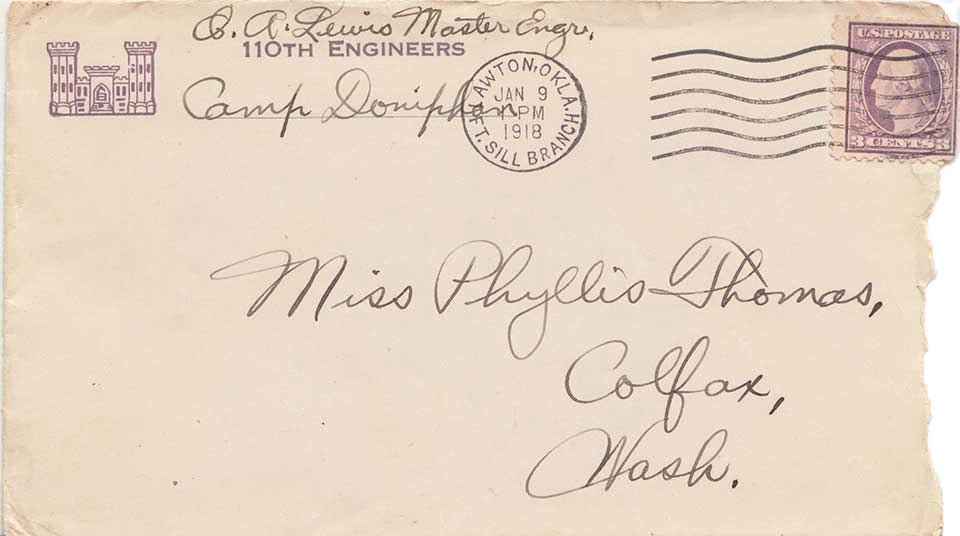 C. A. Lewis Master Engr.
110TH ENGINEERS
Camp Doniphan
LAWTON, OKLA.
JAN 9
PM
1918
FT. SILL BRANCH
U.S. POSTAGE
3 CENTS 3
Miss Phyllis Thomas,
Colfax,
Wash.